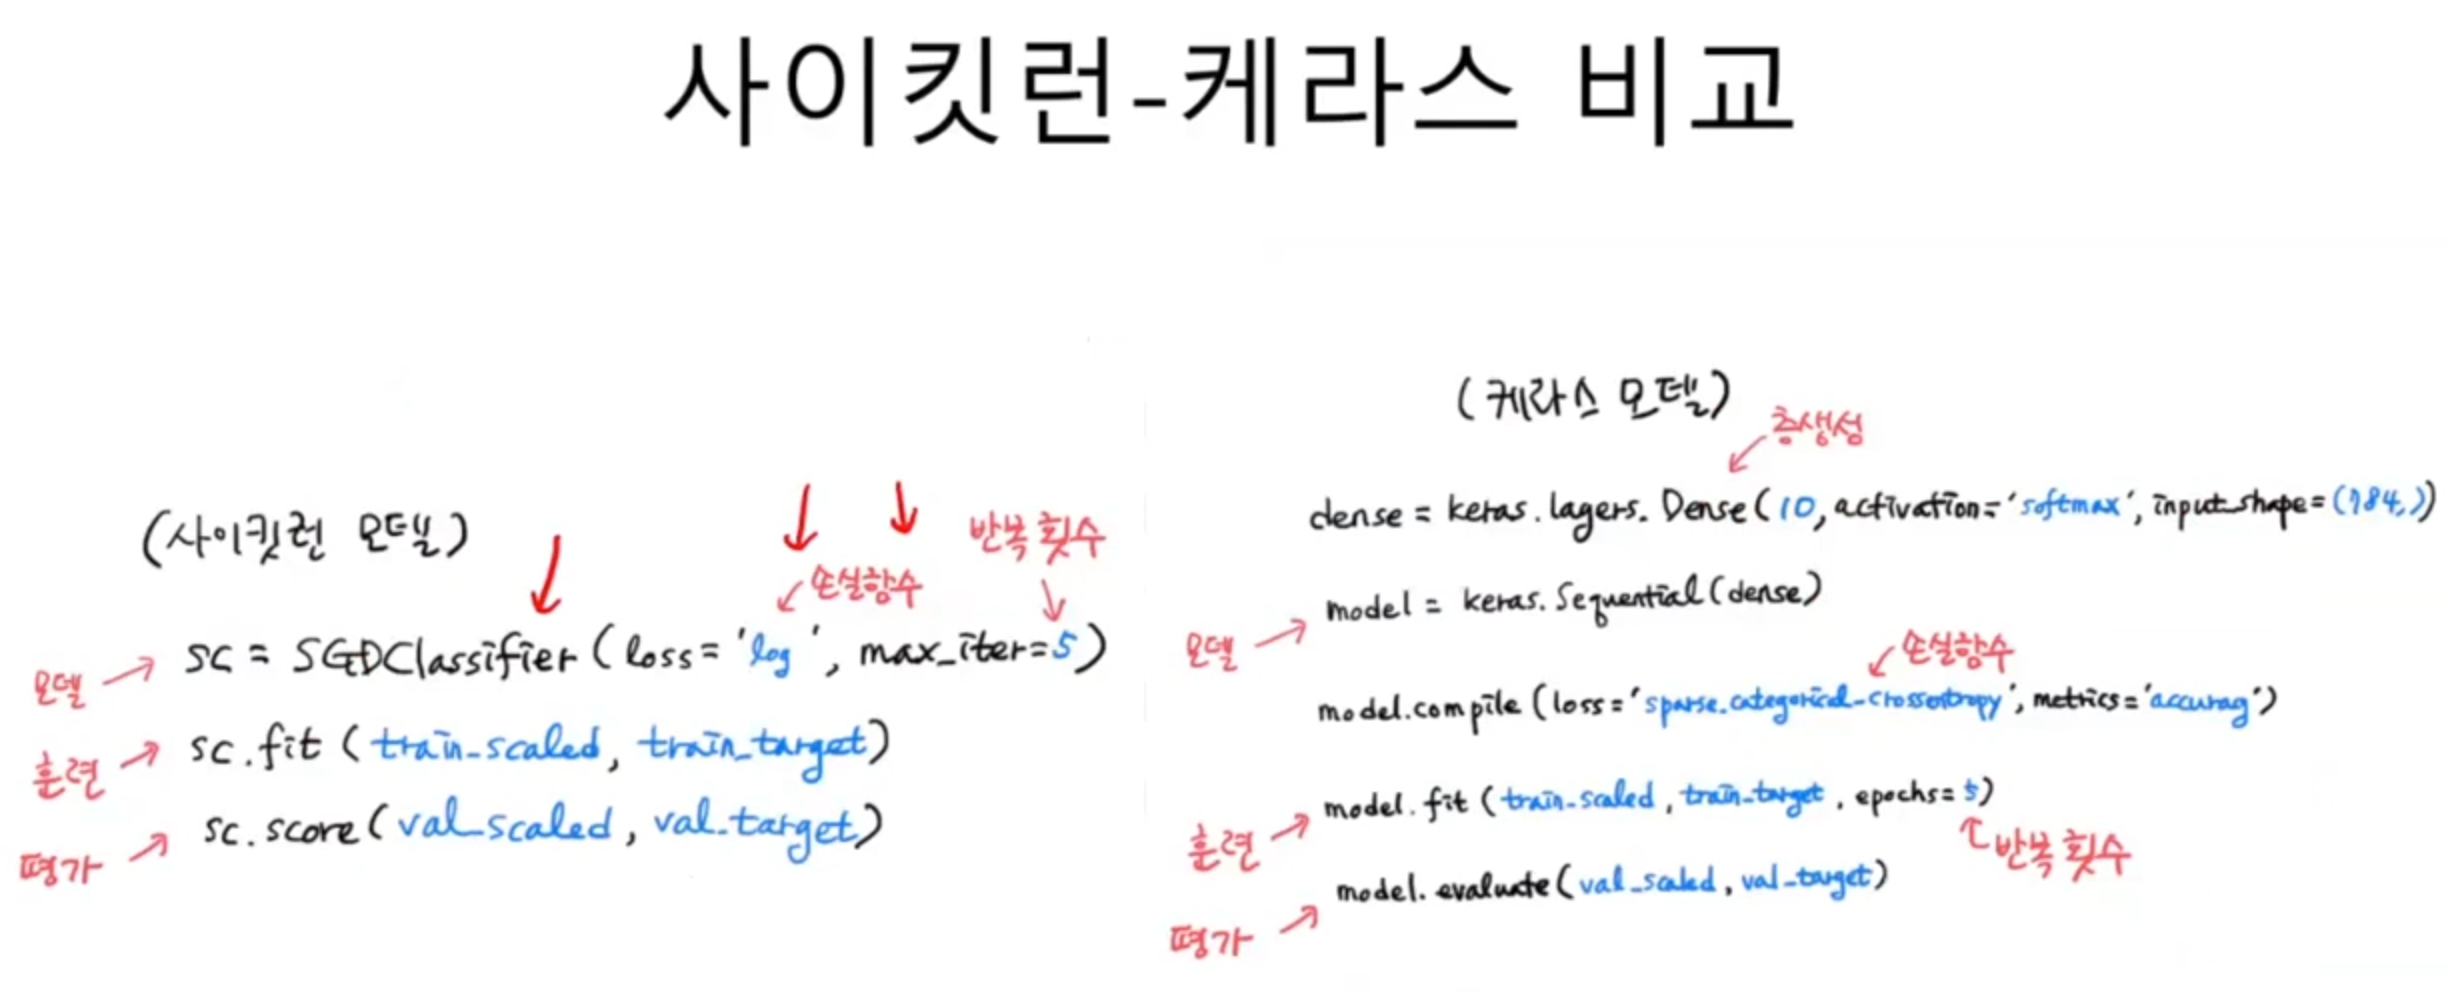 사이킷런-케라스 비교
(사이킷런 모델)
손실함수
반복 횟수
모델 → sc = SGDClassifier (loss='log', max_iter=5)
훈련 → sc.fit (train_scaled, train_target)
평가 → sc.score (val_scaled, val_target)
(케라스 모델)
층생성
dense = keras.layers.Dense (10, activation='softmax', input_shape=(784,))
모델 → model = keras.Sequential (dense)
손실함수
model.compile (loss='sparse_categorical_crossentropy', metrics='accuracy')
훈련 → model.fit (train_scaled, train_target, epochs=5)
반복 횟수
평가 → model.evaluate (val_scaled, val_target)